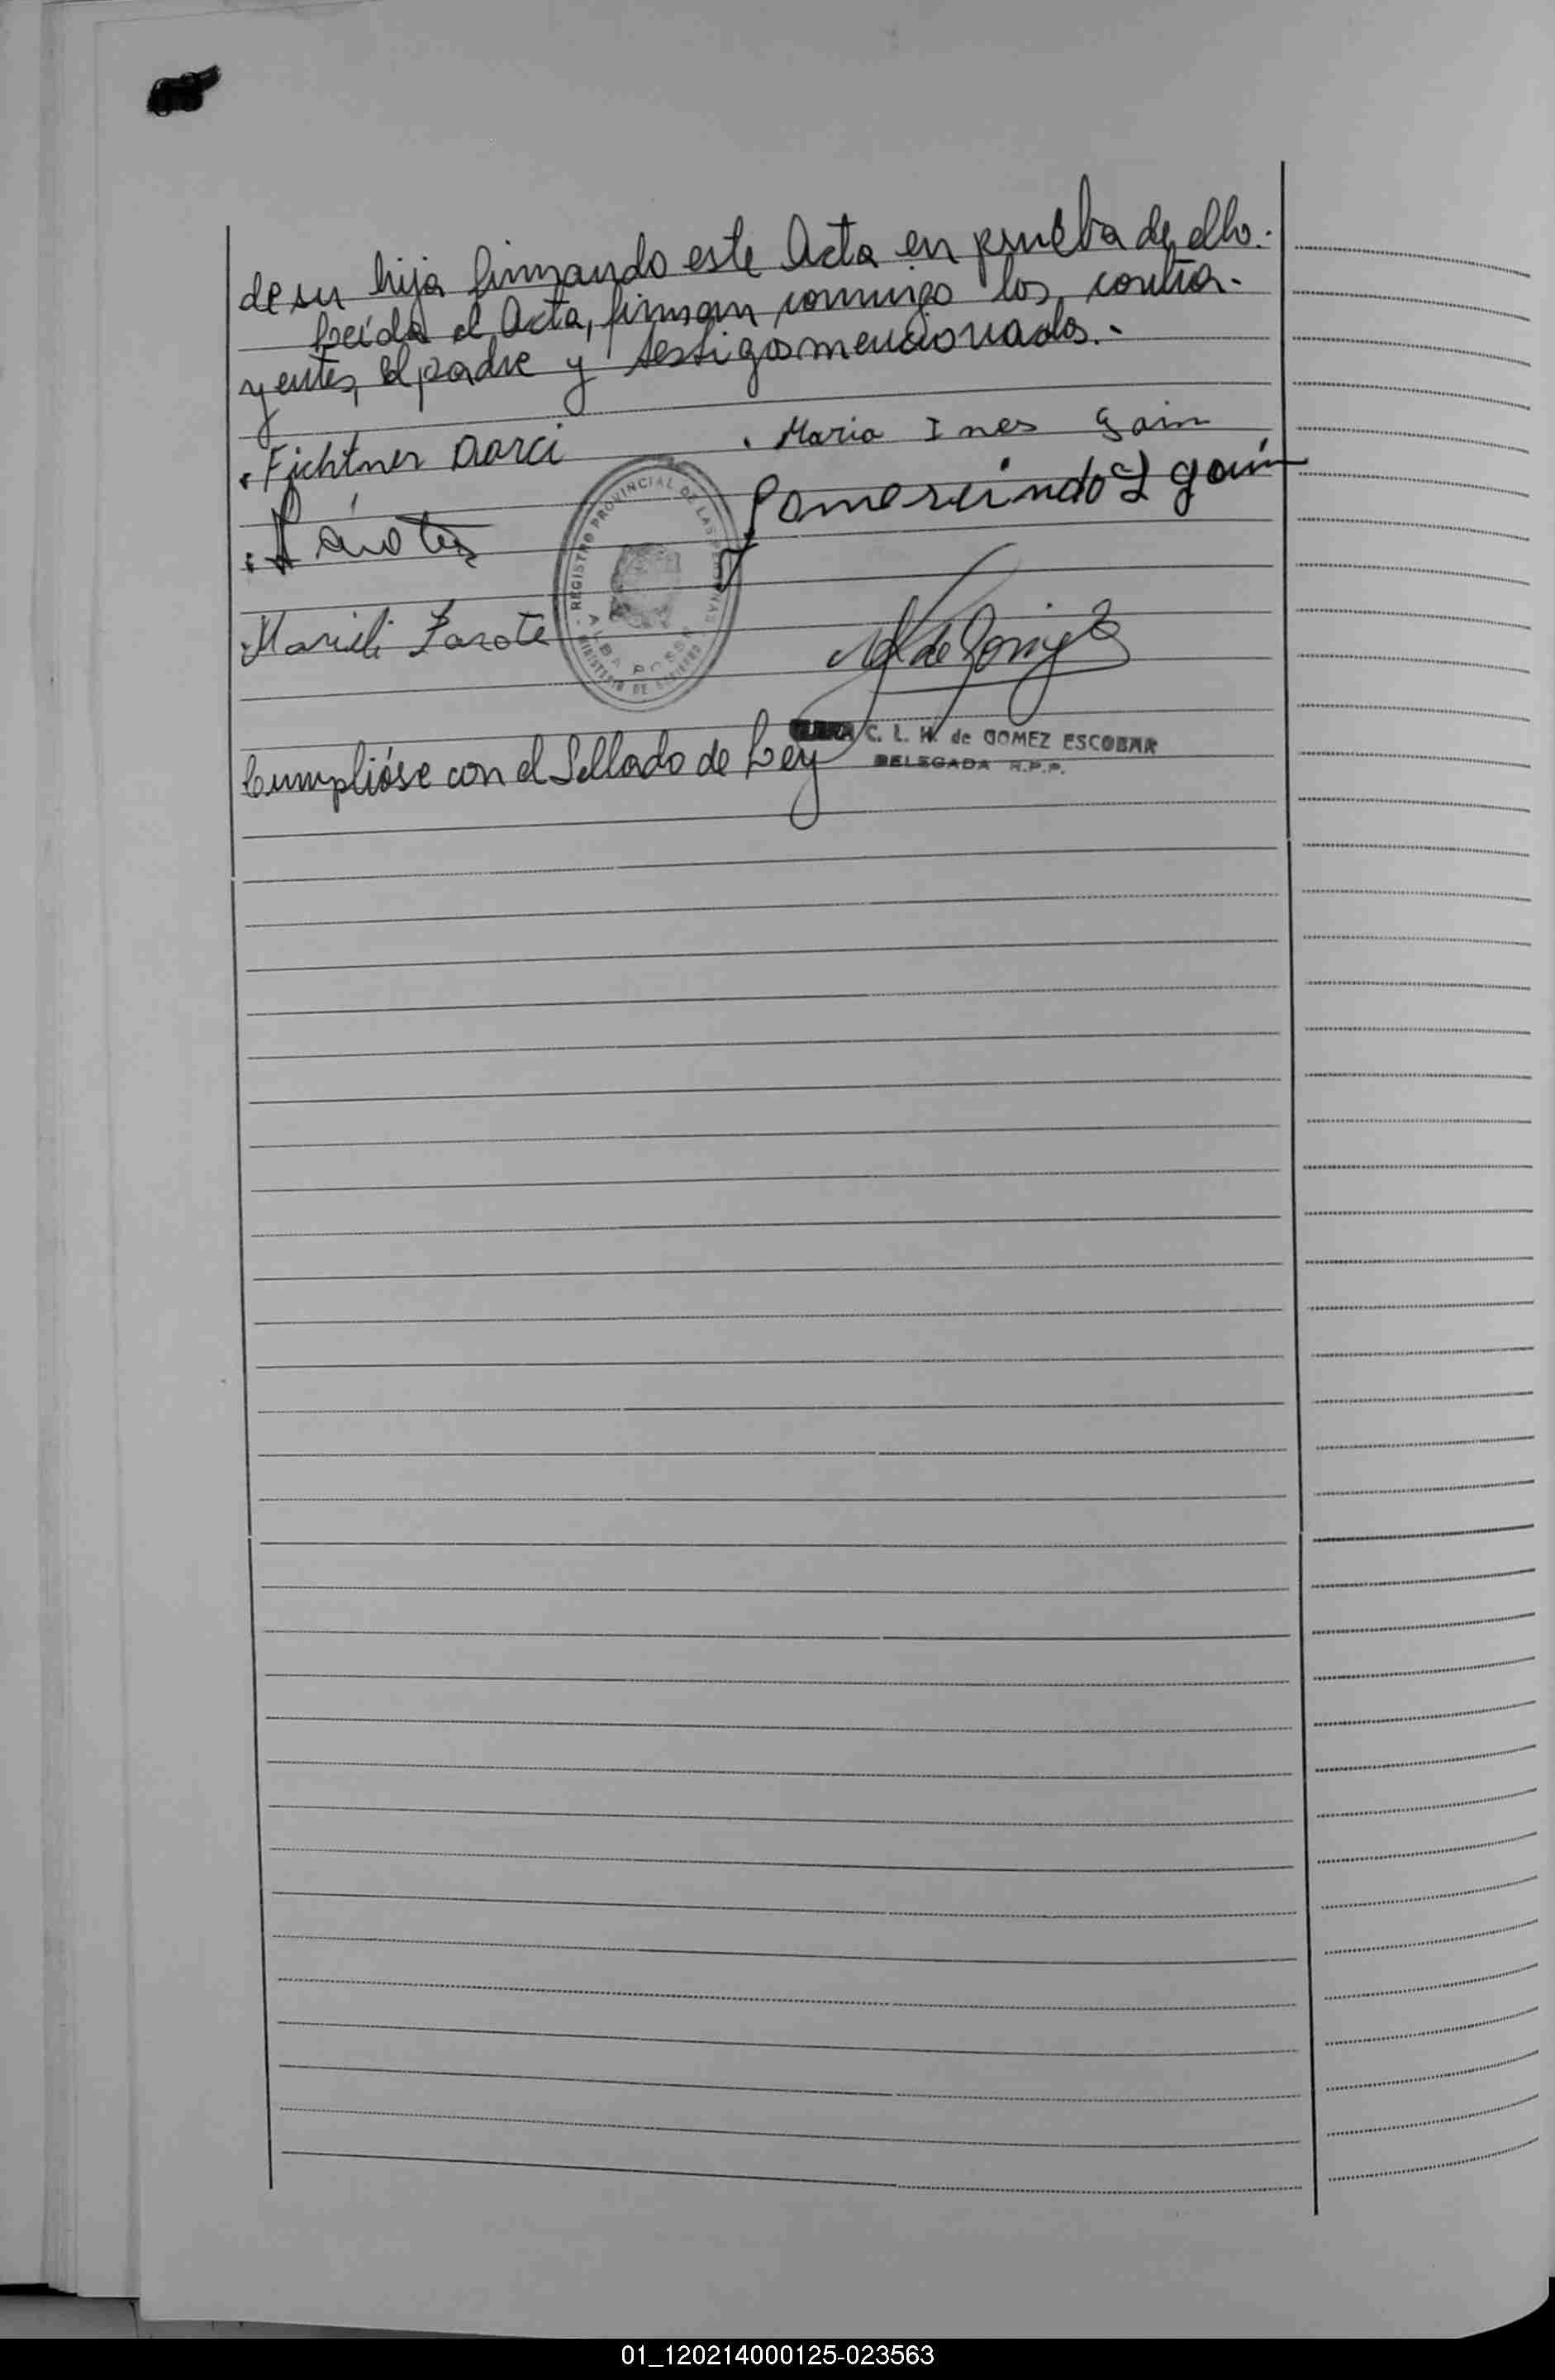 de su hija firmando este Acta en prueba de ello.-
Leída el Acta, firman conmigo los contra-
yentes, el padre y testigos mencionados.-
Fichtner Darci
Maria Ines Gain
Gomercindo L gain
Zarate
Marieli Zarate
REGISTRO PROVINCIAL DE LAS PERSONAS
ALBA POSSE
MINISTERIO DE GOBIERNO
C. L. H. de GOMEZ ESCOBAR
DELEGADA R.P.P.
Cumplióse con el Sellado de Ley
01_120214000125-023563